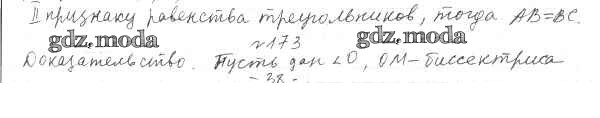 II признаку равенства треугольников, тогда AB=BC.
gdz.moda
№173
gdz.moda
Доказательство. Пусть дан ∠O, OM-биссектриса
- 38 -